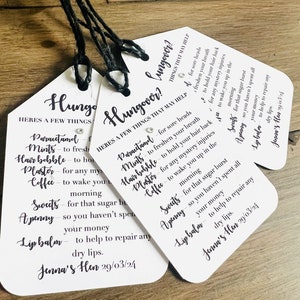 Hungover?
HERES A FEW THINGS THAT MAY HELP
Paracetamol
Mints - to freshen your breath
Hair bobble - to hold your hair back
Plaster - for any mystery injuries
Coffee - to wake you up in the
morning
Sweets - for that sugar boost
A penny - so you haven't spent all
your money
Lip balm - to help to repair any
dry lips.
Jenna's Hen 29/03/24
Hungover?
HERES A FEW THINGS
Paracetamol
Mints - to fresh
Hair bobble - to
Plaster - for any
Coffee - to wake you
morning
Sweets - for that sugar
A penny - so you haven't spen
your money
Lip balm - to help to repair
dry lips.
Jenna's Hen 29/03/24
Hungover?
THINGS THAT MAY HELP
freshen your breath
to hold your hair back
for any mystery injuries
to wake you up in the
morning
Sweets - for that sugar boost
A penny - so you haven't spent all
your money
Lip balm - to help to repair any
dry lips.
Jenna's Hen 29/03/24